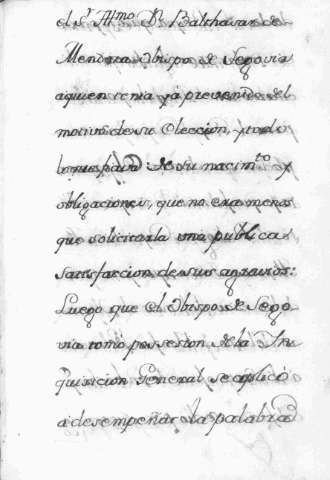 el Sr. Illmo. Dn. Balthasar de
Mendoza Obispo de Segovia
a quien tenia yá prevenido del
motivo de su eleccion, y todo
lo que pasó: de su nacimto. y
obligaciones, que no era menos
que solicitarla una publica
satisfaccion de sus agravios:
Luego que el Obispo de Sego
via tomó possesion de la In
quisicion General se aplicó
a desempeñar la palabra